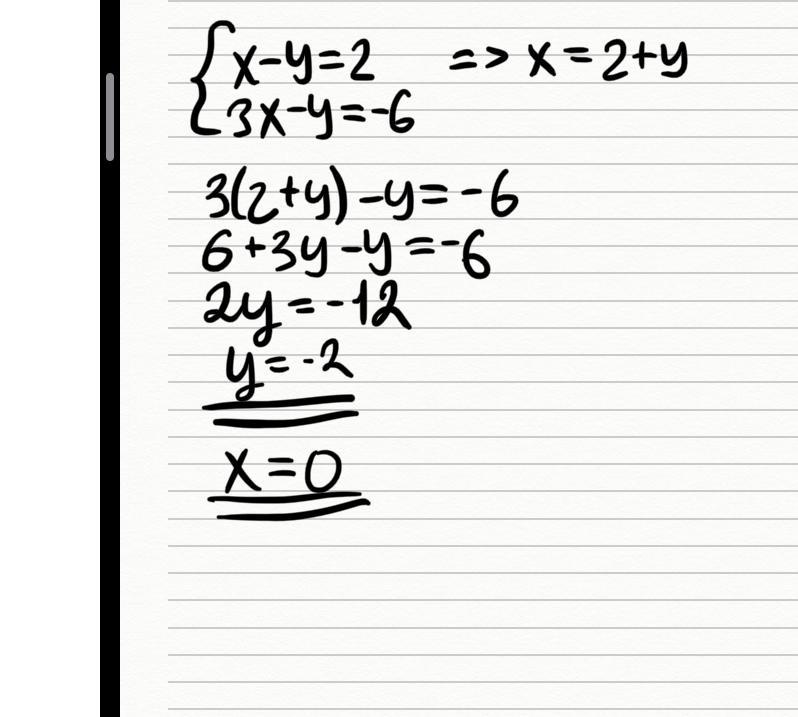 {x-y=2 => x=2+y
3x-y=-6
3(2+y)-y=-6
6+3y-y=-6
2y=-12
y=-2
x=0